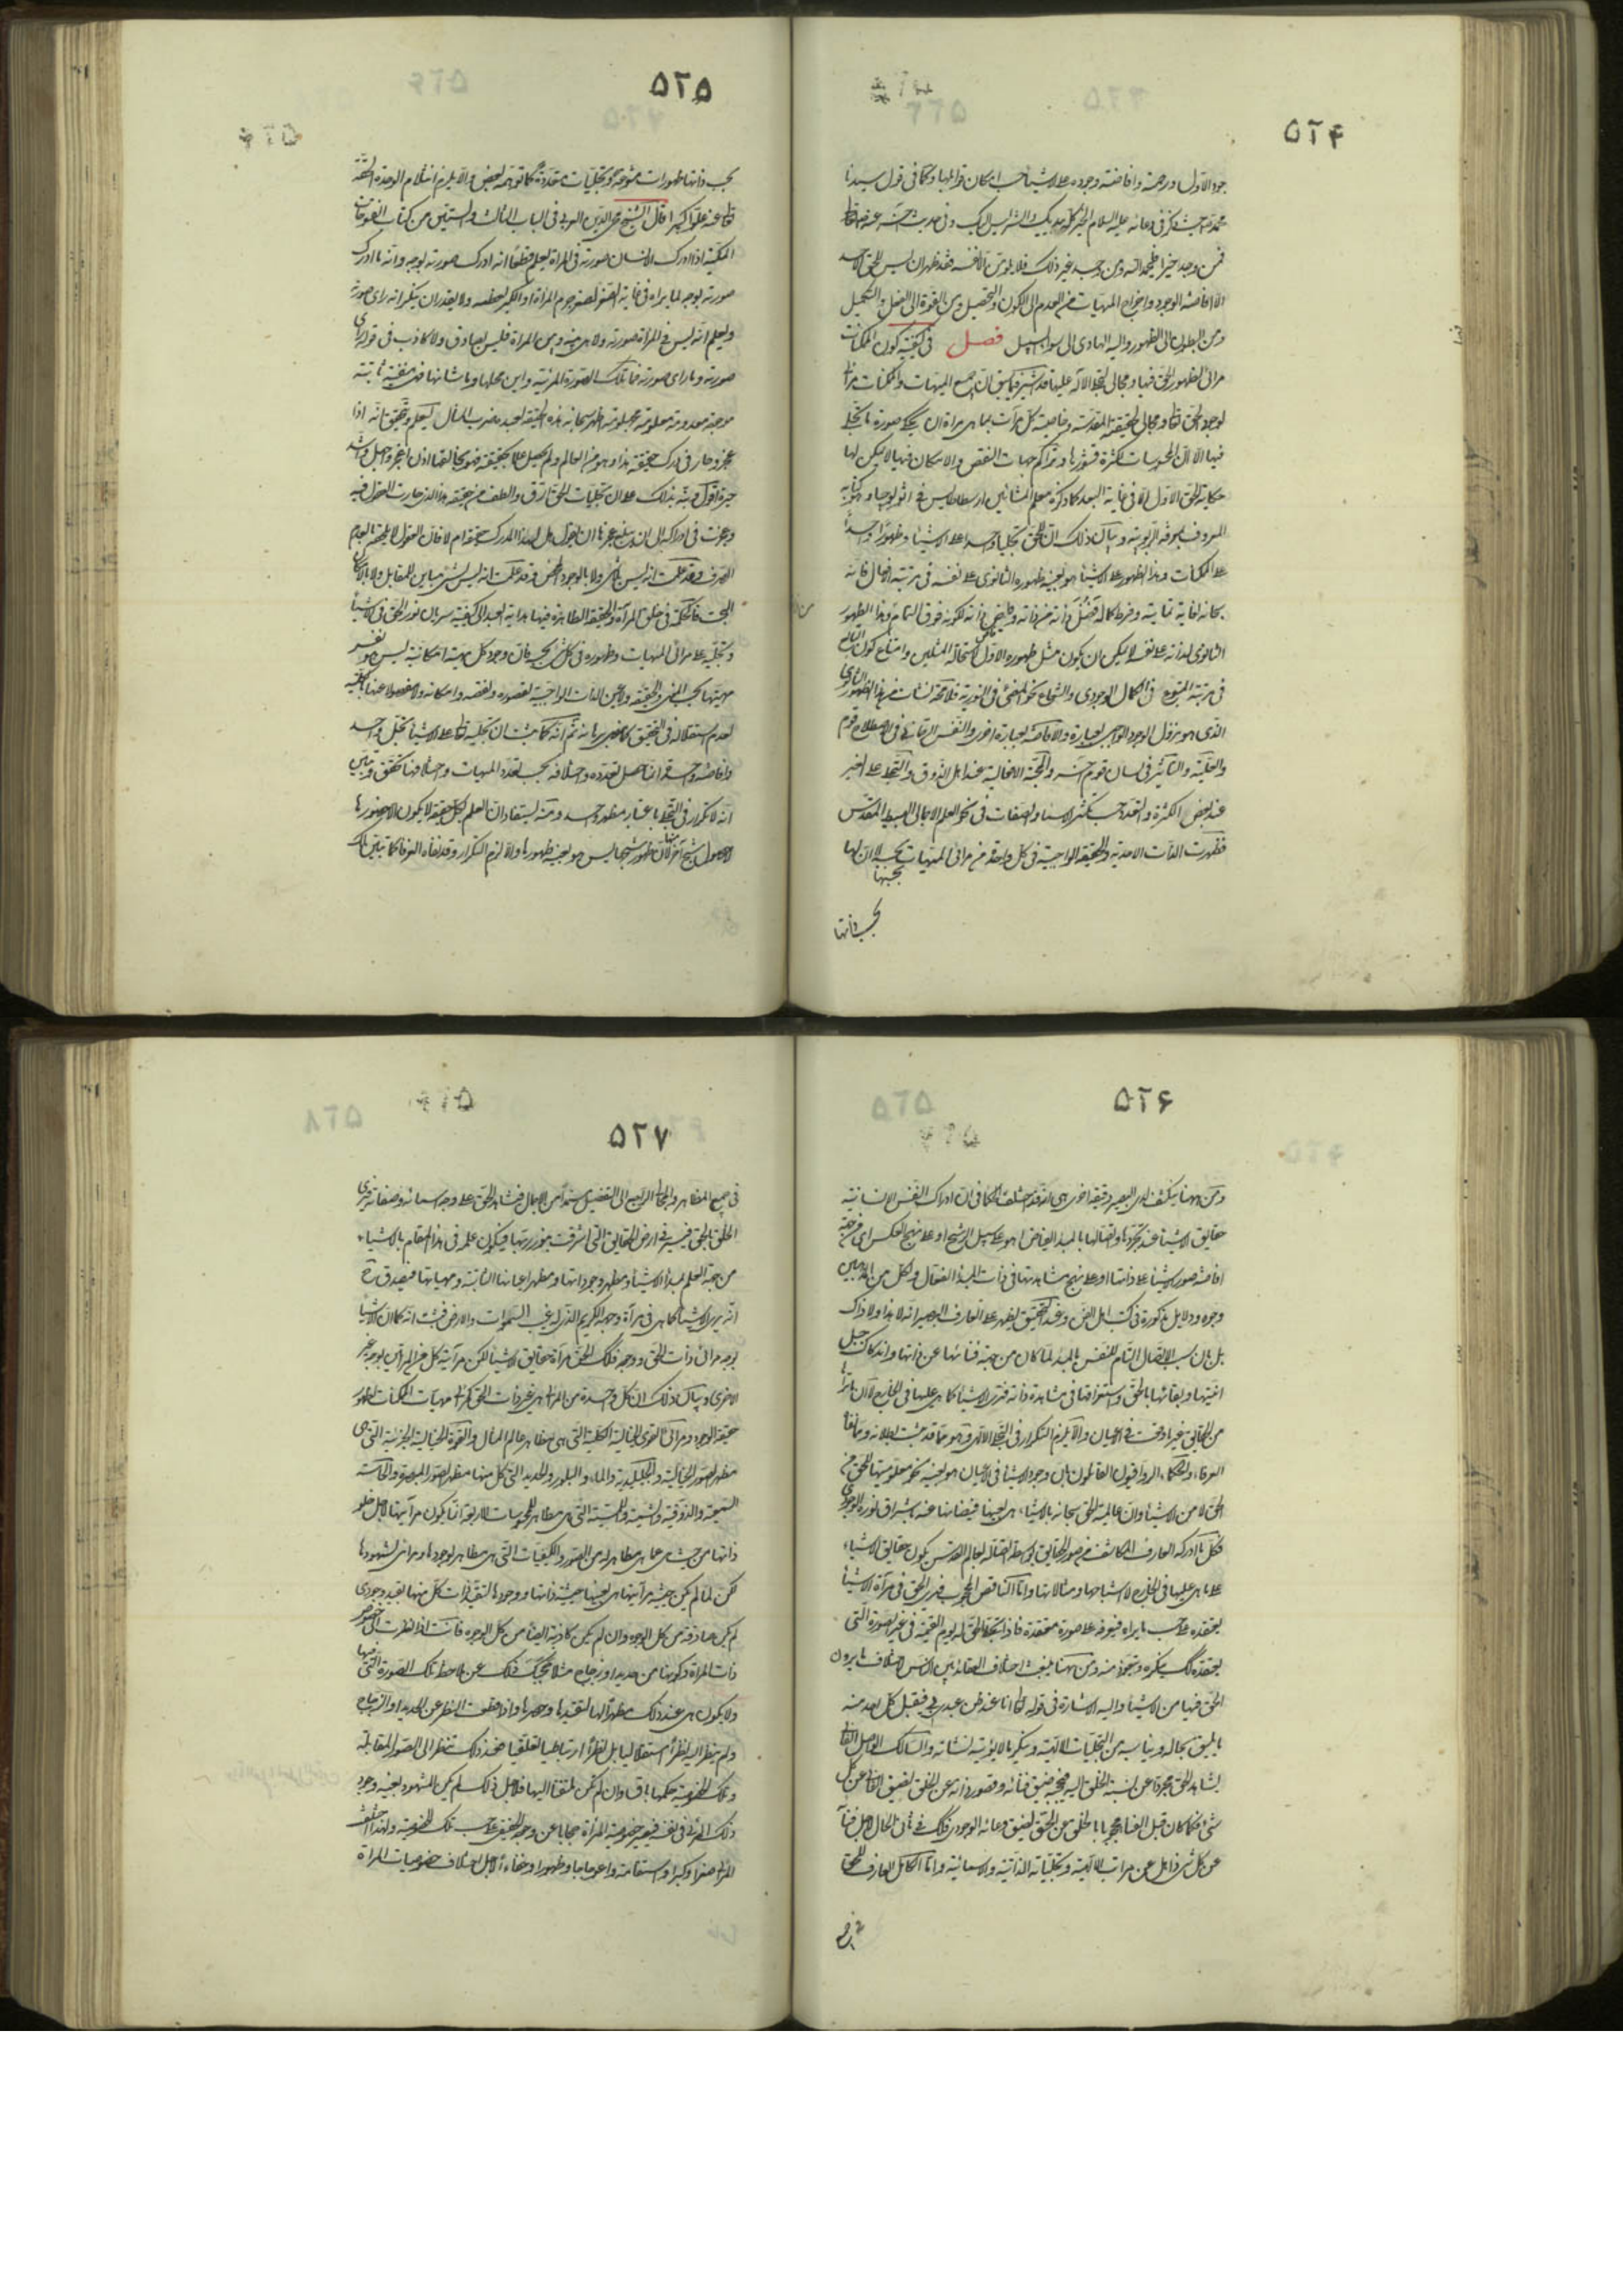 ۵۲۴
جود الاول ورحمته وافاضته وجوده على الاشياء بحسب امكان قوابلها وكما فى قول سيدنا
محمد ص حيث ذكر فى دعائه عليه السلام الخير كله بيديك والشر ليس اليك وفى حديث اخر عنه
فمن وجد خيرا فليحمد الله ومن وجد غير ذلك فلا يلومن الا نفسه فقد ظهر ان ليس للحق الا حمد
الا افاضة الوجود واخراج المهيات من العدم الى الكون والتحصيل ومن القوة الى الفعل والتكميل
ومن البطون الى الظهور والله الهادى الى سواء السبيل فصل فى كيفية كون الممكنات
مرائى لظهور الحق فيها ومجالى لتجلى الاله عليها قد اشير فيما سبق ان جميع المهيات والممكنات مرائى
لوجود الحق تعالى ومجالى لحقيقته المقدسة وخاصية كل مرآت بما هى مرآة ان يحكى صورة ما تجلى
فيها الا ان المحسوسات لكثرة قشورها وتراكم جهات النقص والامكان فيها لا يمكن لها
حكاية الحق الاول الا فى غاية البعد كما ذكره معلم المشائين ارسطاطاليس فى اثولوجيا وهو كتابه
المعروف بمعرفة الربوبية وبيان ذلك ان للحق تجليا واحدا على الاشياء وظهورا واحدا
على الممكنات وهذا الظهور على الاشياء هو بعينه ظهوره الثانوى على نفسه فى مرتبة افعال فانه
سبحانه لغاية تماميته وفرط كماله فضل ذاته من ذاته وفاض ذاته لكونه فوق التمام وهذا الظهور
الثانوى لذاته على نفسه لا يمكن ان يكون مثل ظهوره الاول لاستحالة المثلين وامتناع كون التابع
فى مرتبة المتبوع فى الكمال الوجودى والشعاع نحو المضئ فى النورية فلا محة نشأت من هذا الظهور الثانوى
الذى هو نزول الوجود الواجبى بعبارة والافاضة بعبارة اخرى والنفس الرحمانى فى اصطلاح قوم
والعلية والتأثير فى لسان قوم اخر والمحبة الافعالية عند اهل الذوق والتجلى على الغير
عند بعض الكثرة والتعدد حسب تكثر الاسماء والصفات فى نحو العلم الاجمالى البسيط المقدس
فظهرت الذات الاحدية والحقيقة الواجبية فى كل واحدة من مرائى المهيات بحسبه لا ان لها
بحسبها
بحسب ذاتها
۵۲۵
بحسب ذاتها ظهورات متنوعة وتجليات متعددة كما توهمه بعض والا يلزم انثلام الوحدة الحقة
تعالى عنه علوا كبيرا قال الشيخ محى الدين العربى فى الباب الثالث والستين من كتاب الفتوحات
المكية اذا ادرك الانسان صورته فى المرآة يعلم قطعا انه ادرك صورته بوجه وانه ما ادرك
صورته بوجه لما يراه فى غاية الصغر لصغر جرم المرآة او الكبر لعظمه ولا يقدر ان ينكر انه راى صورته
ويعلم انه ليس فى المرآة صورته ولا هى بينه وبين المرآة فليس بصادق ولا كاذب فى قوله راى
صورته وما راى صورته فما تلك الصورة المرئية واين محلها وما شانها فهى منفية ثابتة
موجودة معدومة معلومة مجهولة اظهر سبحانه هذه الحقيقة لعبده ضرب المثال ليعلم ويتحقق انه اذا
عجز وحار فى درك حقيقة هذا وهو من العالم ولم يحصل علما بحقيقته فهو بخالقها اذن اعجز واجهل واشد
حيرة اقول ونبه بذلك على ان تجليات الحق ارق والطف من حقيقة هذا الذى حارت العقول فيه
وعجزت فى ادراكه الى ان بلغ عجزها ان يقول هل لهذا المدرك حقيقة ام لا فان العقول لا يلحقه بالعدم
الصرف وقد علمت انه ليس بلا شئ ولا بالوجود المحض وقد علمت انه ليس بشئ مباين للمقابل ولا بالامكان
البحت فالحكمة فى خلق المرآة والحقيقة الظاهرة فيها هداية العبد الى كيفية سريان نور الحق فى الاشياء
وتجليه على مرائى المهيات وظهوره فى كل شئ بحسبه فان وجود كل مهية امكانية ليس هو نفس
مهيتها بحسب المعنى والحقيقة ولا عين الذات الواجبية لقصوره ونقصه وامكانه ولا مفصولا عنها بالكلية
لعدم استقلاله فى التحقق كما مضى بيانه ثم انه كما ثبت ان تجليه تعالى على الاشياء تجل واحد
وافاضة واحدة انما حصل تعدده واختلافه بحسب تعدد المهيات واختلافها تحقق وتبين
انه لا تكرار فى التجلى باعتبار مظهر واحد ومنه يستفاد ان العلم بكل حقيقة لا يكون الا بحضورها
لا بحصول شبح اخر منها لان ظهور شبحها ليس هو بعينه ظهورها والا لزم التكرار وقد نفاه العرفاء كما تبين لك
۵۲۶
ومن ههنا ينكشف لذى البصيرة دقيقة اخرى هى انه قد اختلف الحكماء فى ان ادراك النفس الانسانية
حقايق الاشياء عند تجردها واتصالها بالمبدء الفياض اهو على سبيل الرشح او على نهج العكس اى من جهة
افاضة صور الاشياء على ذاتها او على نهج مشاهدتها فى ذات المبدء الفعال ولكل من المذهبين
وجوه ودلايل مذكورة فى كتب اهل الفن وعند التحقيق يظهر على العارف البصير انه لا هذا ولا ذاك
بل بان سبب الاتصال التام للنفس بالمبدء لما كان من جهة فنائها عن ذاتها واندكاك جبل
انيتها وبقائها بالحق واستغراقها فى مشاهدة ذاته فترى الاشياء كما هى عليها فى الخارج لا ان ما يراها
من الحقايق غير ما وقعت فى الاعيان والا يلزم التكرار فى التجلى الالهى وهو مما قد ثبت بطلانه ومما نفاه
العرفاء والحكماء الرواقيون القائلون بان وجود الاشياء فى الاعيان هو بعينه نحو معلوميتها للحق من
الحق لا من الاشياء وان عالمية الحق سبحانه بالاشياء هى بعينها فيضانها عنه باشراق نوره الوجودى
فكل ما ادركه العارف المكاشف من صور الحقايق بواسطة اتصاله بعالم القدس يكون حقايق الاشياء
على ما هى عليها فى الخارج لا اشباحها ومثالاتها واما الناقص المحجوب فيرى الحق فى مرآة الاشياء
ويعتقده على حسب ما يراه فيعرفه على صورة معتقده فاذا تجلى الحق له يوم القيمة فى غير الصورة التى
يعتقده كك ينكره ويتعوذ منه ومن ههنا ينبعث اختلاف العقائد بين الناس لاختلاف ما يرون
الحق فيها من الاشياء واليه الاشارة فى قوله تعالى انا عند ظن عبدى بى فيقبل كل احد منه
ما يليق بحاله ويناسبه من التجليات الالهية وينكر ما لا يؤتيه نشاته والسالك الواصل الفانى
يشاهد الحق مجردا عن نسبة الخلق اليه فيحجبه ضيق فنائه وقصور ذاته عن الخلق لضيق الفانى عن كل
شئ فكما كان قبل الفناء محجوبا بالخلق عن الحق لضيق وعائه الوجودى فكك فى ثانى الحال لاجل فنائه
عن كل شئ ذاهل عن مراتب الالهية وتجلياته الذاتية والاسمائية واما الكامل العارف للحق
فى جميع
۵۲۷
فى جميع المظاهر والمجالى الراجع الى التفصيل مستمدا من الاجمال فيشاهد الحق على وجه اسمائه وصفاته فيرى
الخلق بالحق فيسير فى ارض الحقايق التى اشرقت بنور ربها فيكون علمه فى هذا المقام بالاشياء
من جهة العلم بمبدء الاشياء ومظهر وجوداتها ومظهر اعيانها الثابتة ومهياتها فيصدق ح
انه يرى الاشياء كما هى فى مرآة وجهه الكريم الذى له غيب السموات والارض فثبت انه كما ان الاشياء
بوجه مرائى ذات الحق ووجهه فكك الحق مرآة حقايق الاشياء لكن مرآتية كل من المرآتين بوجه غير
الاخرى وبيان ذلك ان كل واحدة من المرائى هى غير ذات الحق كمرائى مهيات الممكنات لظهور
حقيقة الوجود ومرائى القوى الخيالية الكلية التى هى مظاهر عالم المثال والقوة الخيالية الجزئية التى هى
مظهر الصور الخيالية والجليدية والماء والبلور والحديد التى كل منها مظهر الصور المبصرة والحاسة
السمعية والذوقية والشمية واللمسية التى هى مظاهر للمحسوسات الاربعة انما يكون مرآتيتها لاجل خلو
ذاتها من حيث هى عما هى مظاهر له من الصور والكيفيات التى هى مظاهر لوجودها ومرائى لشهودها
لكن لما لم يكن حيثية مرآتيتها هى بعينها حيثية ذاتها ووجودها لتقيد ذات كل منها بقيد وجودى
لم يكن صادقة من كل الوجوه وان لم يكن كاذبة ايضا من كل الوجوه فانت اذا نظرت الى خصوص
ذات المرآة وكونها من حديد او زجاج مثلا يحجبك ذلك عن ملاحظة تلك الصورة التى فيها
ولا يكون هى عند ذلك مظهرا لها لتقيدها وحصرها واذا قطعت النظر عن الحديد او الزجاج
ولم ينظر اليه نظرا استقلاليا بل نظرا ارتباطيا تعلقيا فعند ذلك تنظر الى الصورة المقابلة
وتلك الخصوصية حكمها باق وان لم تكن ملتفتا اليها فلاجل ذلك لم يكن المشهود بعينه وجود
ذلك المرئى فى نفسه فيصير خصوصية المرآة حجابا عن وجه الحقيقى على حسب تلك الخصوصية ولهذا اختلف
المرائى صغرا وكبرا واستقامة واعوجاجا وظهورا وخفاء لاجل اختلاف خصوصيات المرآة